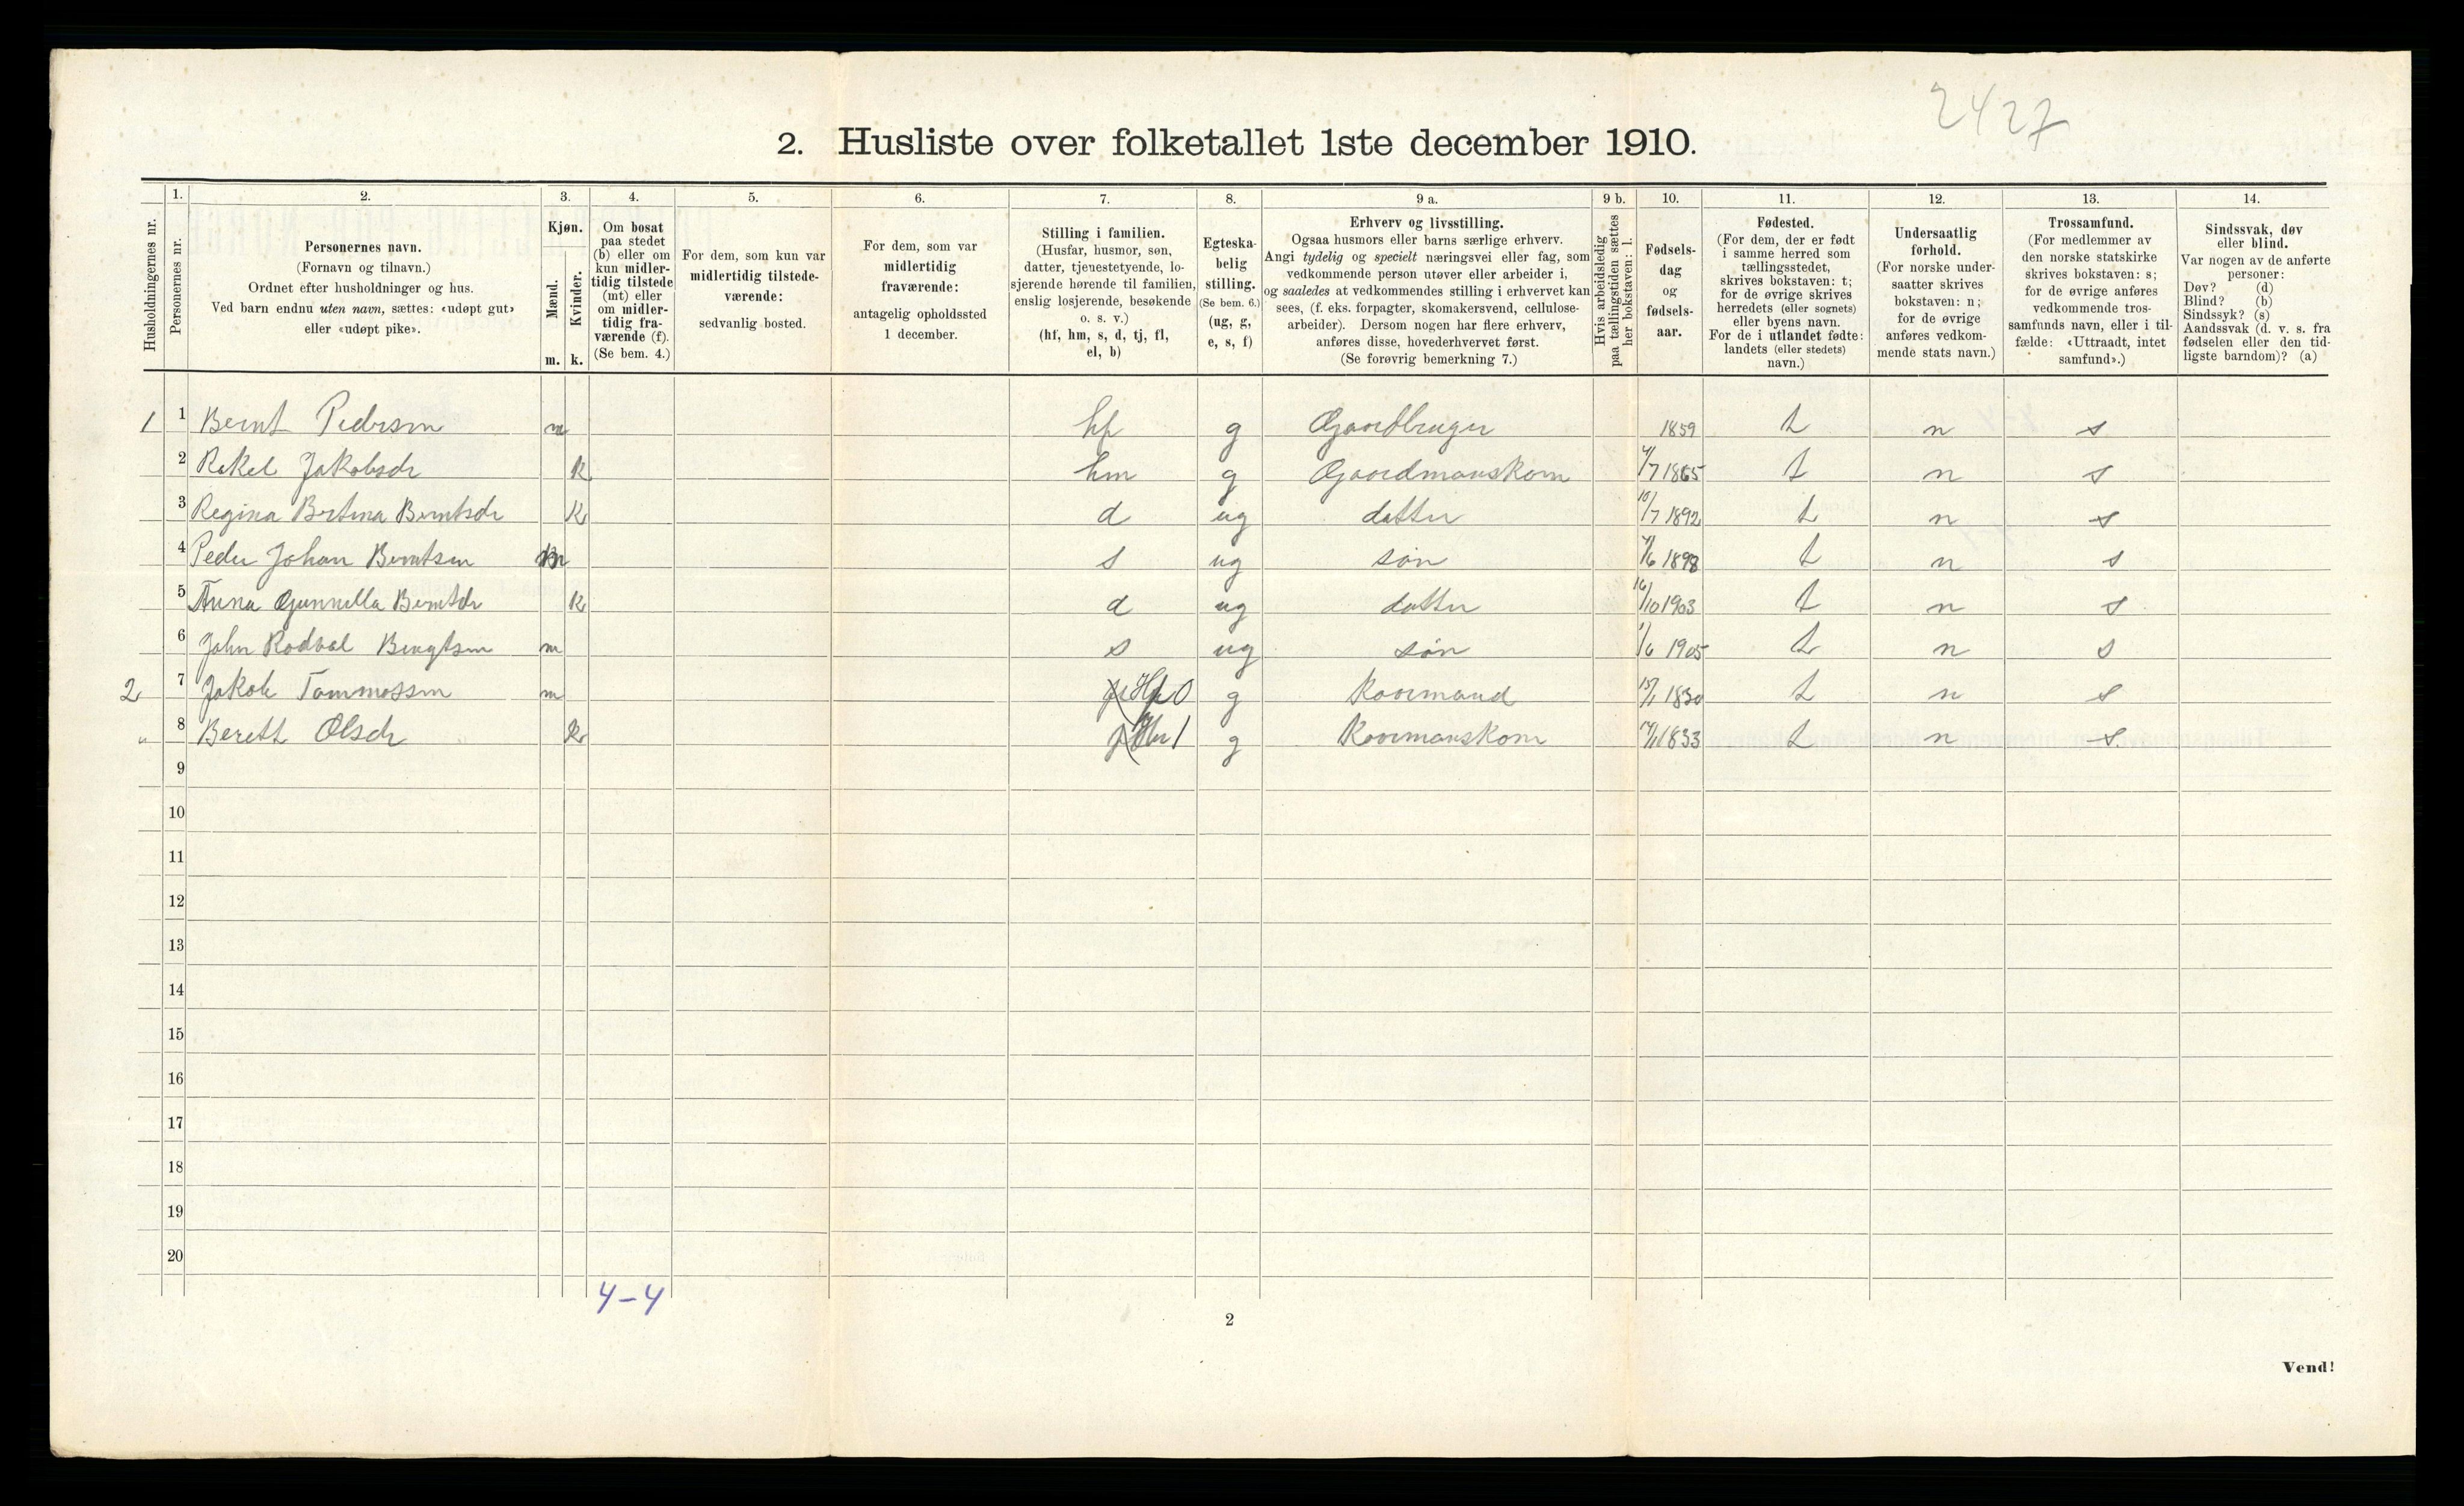 2427
2. Husliste over folketallet 1ste december 1910.
Husholdningernes nr.
1.
Personernes nr.
2.
Personernes navn.
(Fornavn og tilnavn.)
Ordnet efter husholdninger og hus.
Ved barn endnu uten navn, sættes: «udøpt gut»
eller «udøpt pike».
3.
Kjøn.
Mænd.
Kvinder.
m. k.
4.
Om bosat
paa stedet
(b) eller om
kun midler-
tidig tilstede
(mt) eller
om midler-
tidig fra-
værende (f).
(Se bem. 4.)
5.
For dem, som kun var
midlertidig tilstede-
værende:
sedvanlig bosted.
6.
For dem, som var
midlertidig
fraværende:
antagelig opholdssted
1 december.
7.
Stilling i familien.
(Husfar, husmor, søn,
datter, tjenestetyende, lo-
sjerende hørende til familien,
enslig losjerende, besøkende
o. s. v.)
(hf, hm, s, d, tj, fl,
el, b)
8.
Egteska-
belig
stilling.
(Se bem. 6.)
(ug, g,
e, s, f)
9 a.
Erhverv og livsstilling.
Ogsaa husmors eller barns særlige erhverv.
Angi tydelig og specielt næringsvei eller fag, som
vedkommende person utøver eller arbeider i,
og saaledes at vedkommendes stilling i erhvervet kan
sees, (f. eks. forpagter, skomakersvend, cellulose-
arbeider). Dersom nogen har flere erhverv,
anføres disse, hovederhvervet først.
(Se forøvrig bemerkning 7.)
9 b.
Hvis arbeidsledig
paa tællingstiden sættes
her bokstaven: l.
10.
Fødsels-
dag
og
fødsels-
aar.
11.
Fødested.
(For dem, der er født
i samme herred som
tællingsstedet,
skrives bokstaven: t;
for de øvrige skrives
herredets (eller sognets)
eller byens navn.
For de i utlandet fødte:
landets (eller stedets)
navn.)
12.
Undersaatlig
forhold.
(For norske under-
saatter skrives
bokstaven: n;
for de øvrige
anføres vedkom-
mende stats navn.)
13.
Trossamfund.
(For medlemmer av
den norske statskirke
skrives bokstaven: s;
for de øvrige anføres
vedkommende tros-
samfunds navn, eller i til-
fælde: «Uttraadt, intet
samfund».)
14.
Sindssvak, døv
eller blind.
Var nogen av de anførte
personer:
Døv? (d)
Blind? (b)
Sindssyk? (s)
Aandssvak (d. v. s. fra
fødselen eller den tid-
ligste barndom)? (a)
1 1 Bernt Pedersen m hf g Gaardbruger 1859 t n s
2 Rakel Jakobsdr k hm g Gaardmanskone 4/7 1865 t n s
3 Regina Bertina Berntsdr k d ug datter 10/7 1892 t n s
4 Peder Johan Berntsen m s ug søn 1898 t n s
5 Anna Gunnella Berntdr k d ug datter 16/10 1903 t n s
6 John Rodval Bengtsen m s ug søn 1/6 1905 t n s
2 7 Jakob Tommassen m Hf 0 g Kaarmand 1830 t n s
" 8 Berett Olsdr k Hm 1 g Kaarmanskone 1833 t n s.
9
10
11
12
13
14
15
16
17
18
19
20
4-4
2
Vend!